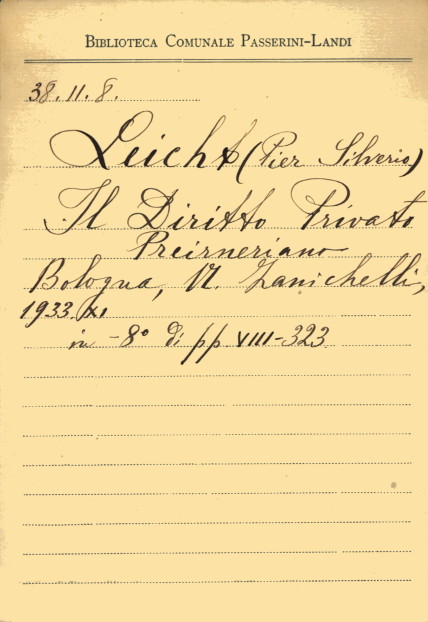 BIBLIOTECA COMUNALE PASSERINI-LANDI
38.11.8.
Leicht (Pier Silverio)
Il Diritto Privato
Preirneriano
Bologna, N. Zanichelli,
1933. XI
in -8° di pp. VIII-323